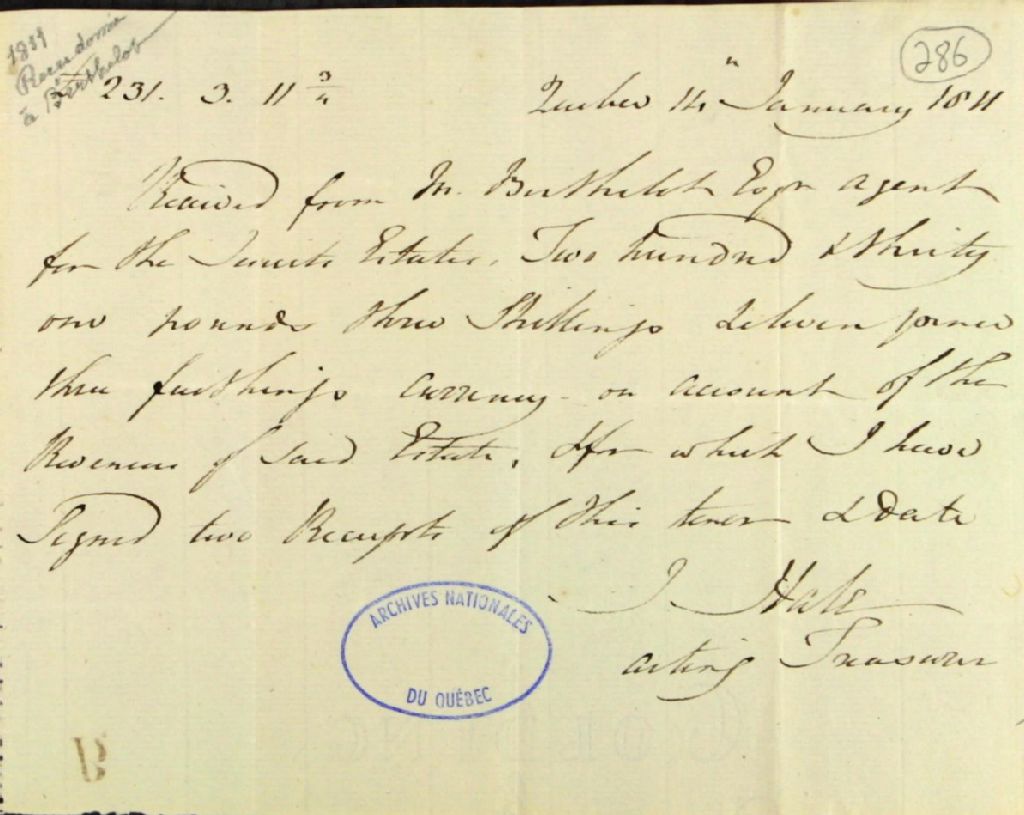 1811
Recu donné
à Berthelot
286
231. 3. 11 3/4
Quebec 14th January 1811
Received from M. Berthelot Esqr Agent
for the Jesuits Estates, Two hundred & thirty
one pounds three Shillings & eleven pence
three farthings Currency on account of the
Revenues of said Estate, & for which I have
Signed two Receipts of this tenor & date
J. Hale
acting Treasurer
ARCHIVES NATIONALES
DU QUÉBEC
B